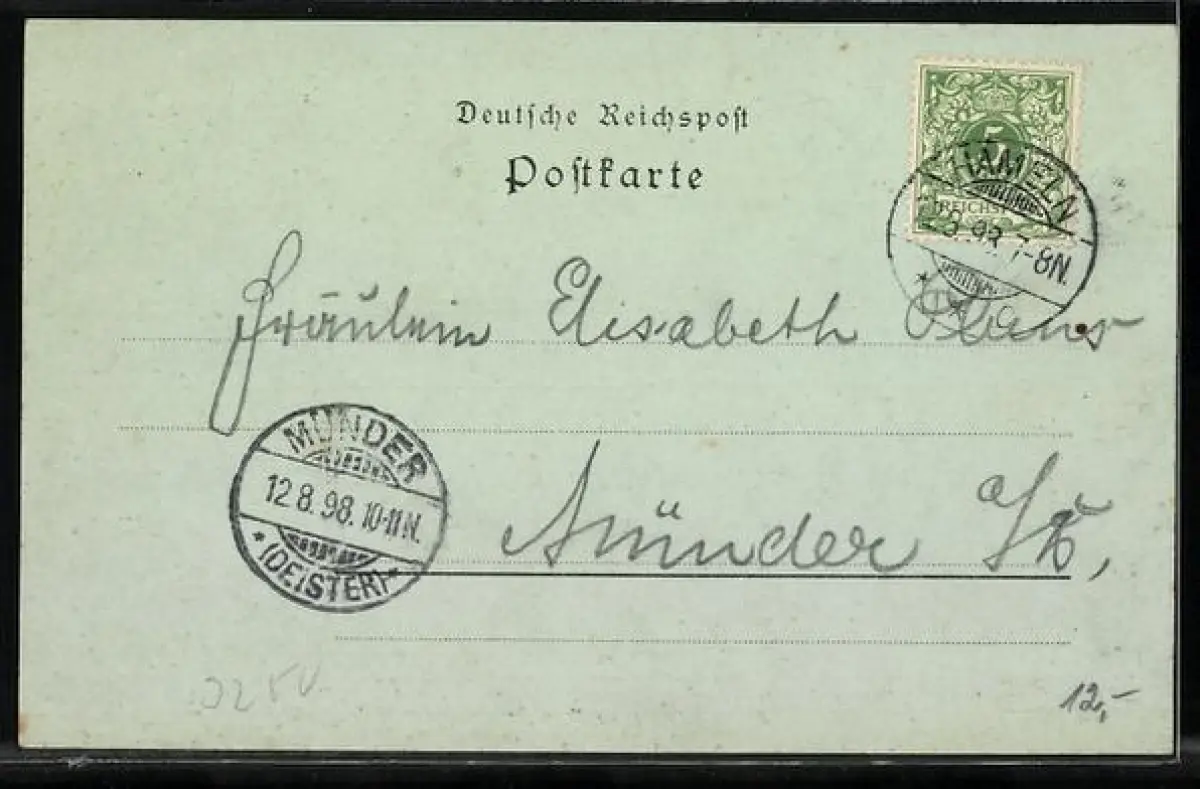 Deutsche Reichspost
Postkarte
5
REICHSP
HAMELN
7-8N.
Fräulein Elisabeth
MÜNDER
12.8.98.10-11N.
* (DEISTER) *
Münder a/
12,-